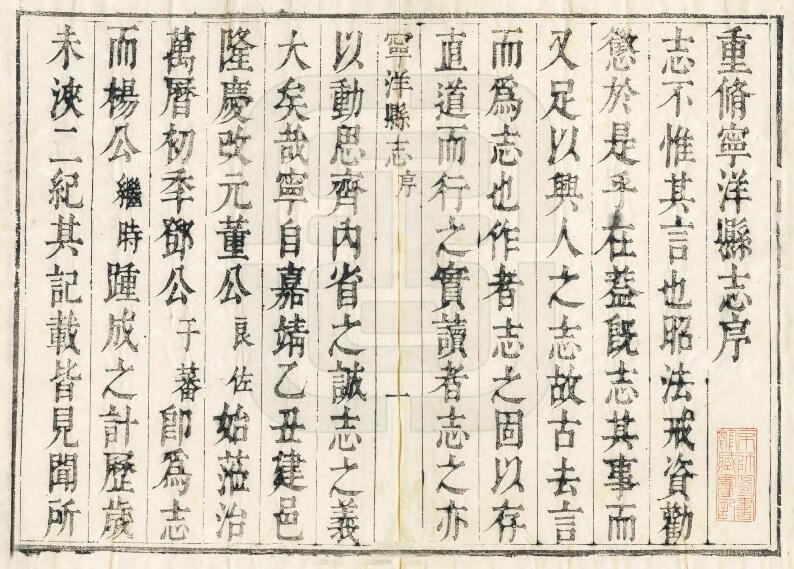 重脩寧洋縣志序
志不惟其言也昭法戒資勸
懲於是乎在葢既志其事而
又足以興人之志故古去言
而爲志也作者志之固以存
直道而行之實讀者志之亦
寧洋縣志 序 一
以動思齊內省之誠志之義
大矣哉寧自嘉靖乙丑建邑
隆慶改元董公良佐始蒞治
萬曆初季鄧公于蕃卽爲志
而楊公繼時踵成之計歷歲
未浹二紀其記載皆見聞所